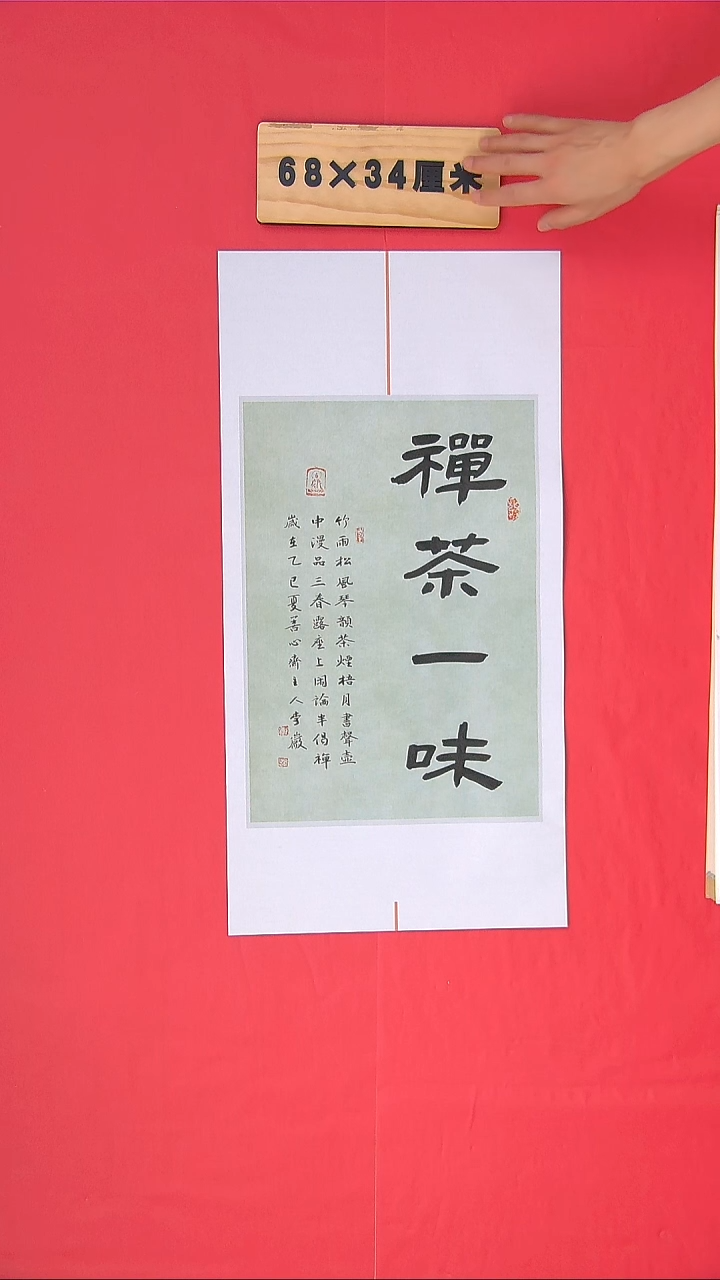 68×34厘米
禪茶一味
竹雨松風琴韻茶煙梧月書聲壺
中漫品三春露座上閒論半偈禪
歲在乙巳夏善心齋主人李徽